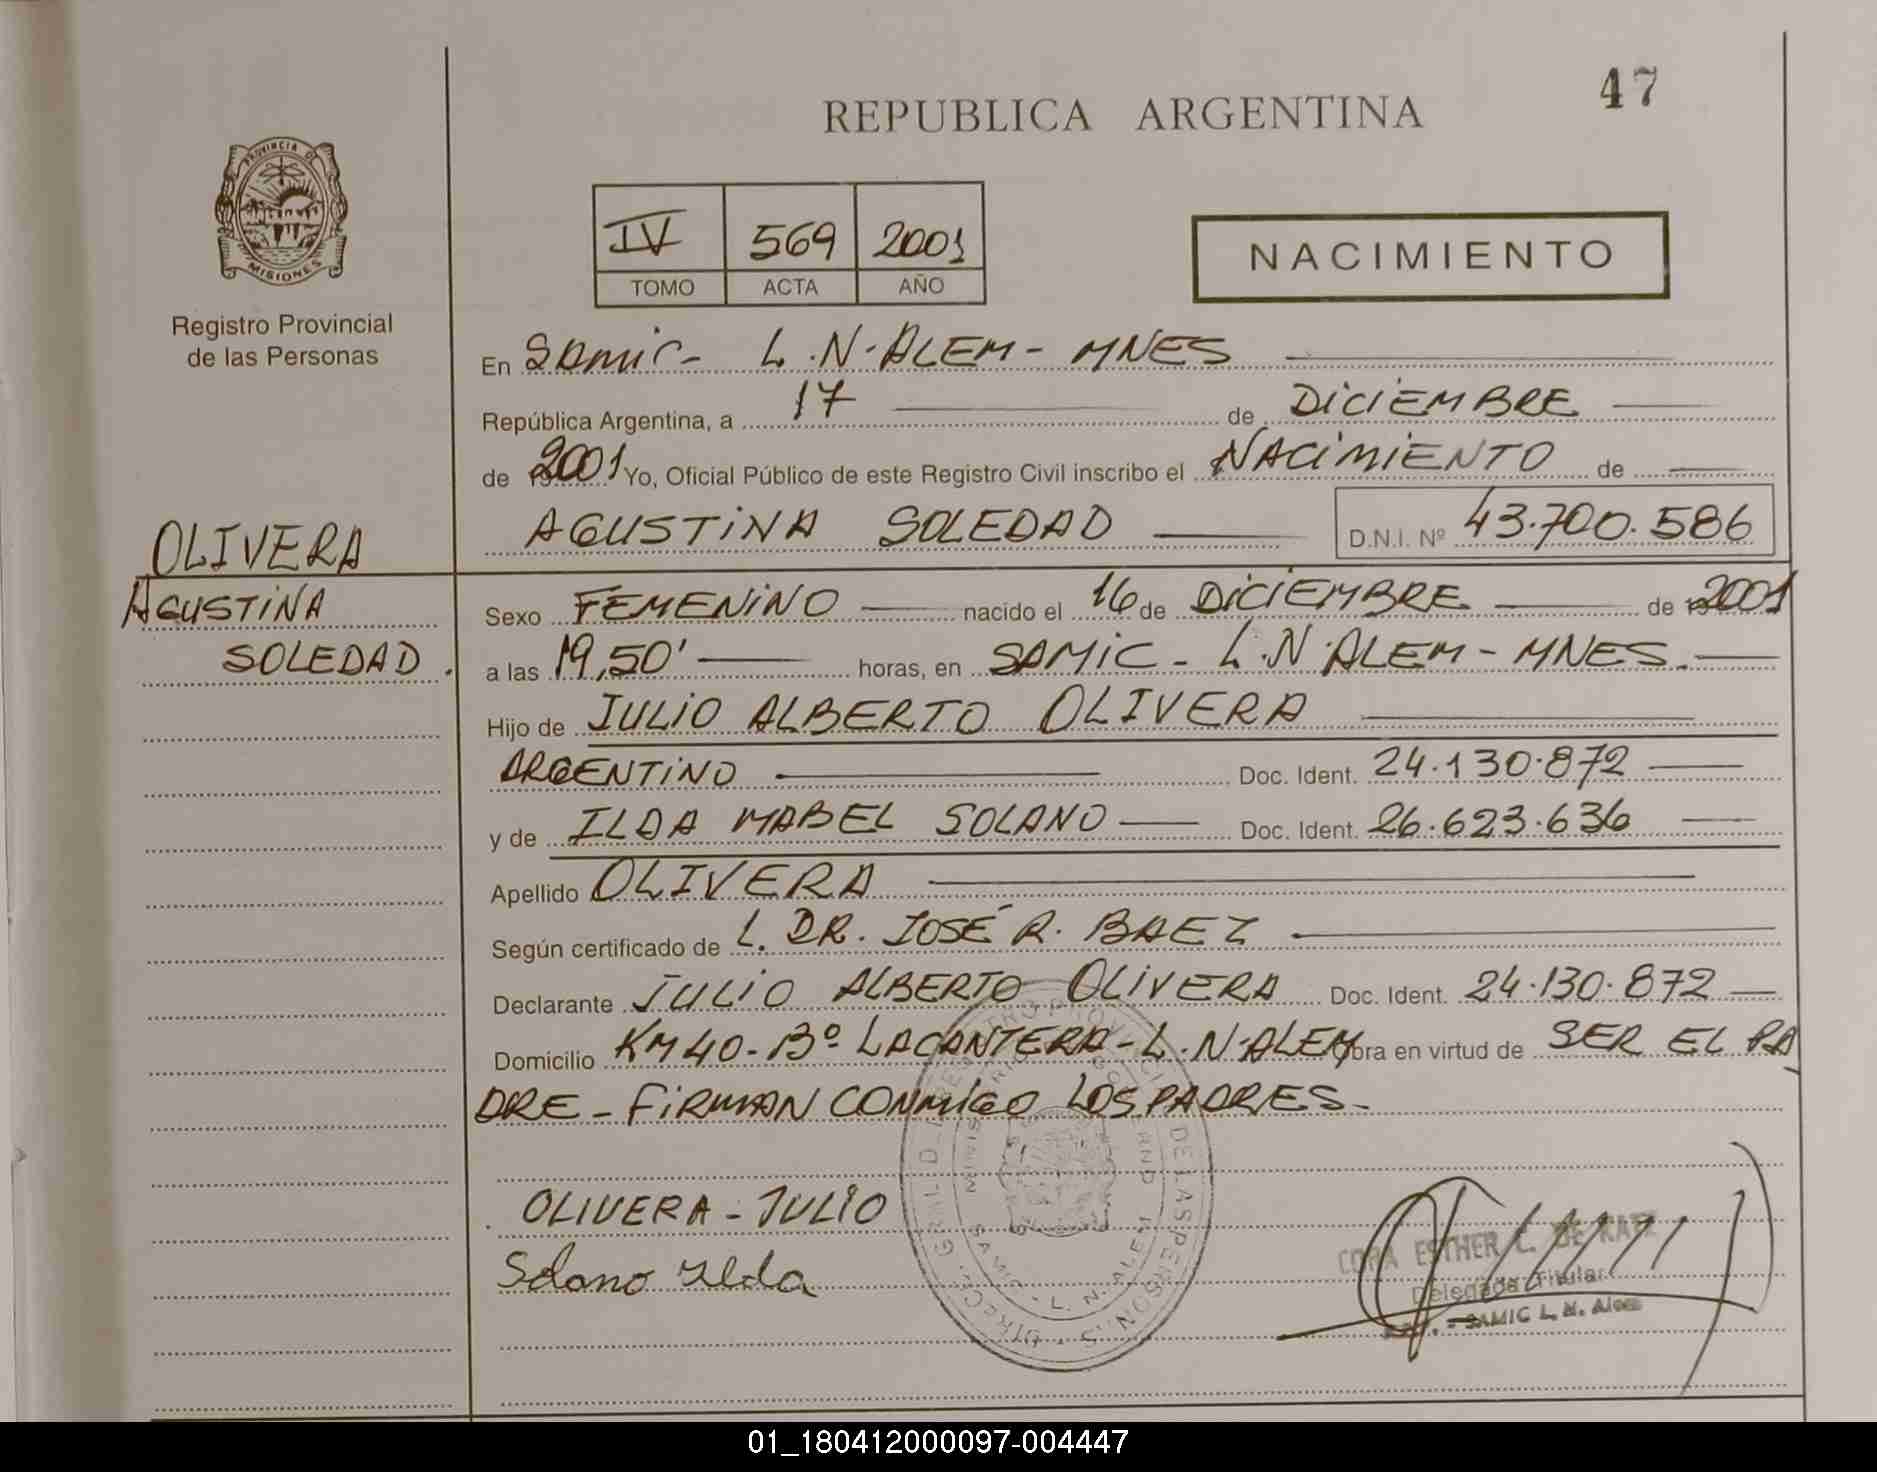 47
REPUBLICA ARGENTINA
PROVINCIA DE
MISIONES
Registro Provincial
de las Personas
IV 569 2001
TOMO ACTA AÑO
NACIMIENTO
En SAMIC - L.N. ALEM - MNES
República Argentina, a 17 de DICIEMBRE
de 2001 Yo, Oficial Público de este Registro Civil inscribo el NACIMIENTO de
AGUSTINA SOLEDAD D.N.I. Nº 43.700.586
OLIVERA
AGUSTINA
SOLEDAD.
Sexo FEMENINO nacido el 16 de DICIEMBRE de 2001
a las 19,50' horas, en SAMIC - L.N. ALEM - MNES.
Hijo de JULIO ALBERTO OLIVERA
ARGENTINO Doc. Ident. 24.130.872
y de ILDA MABEL SOLANO Doc. Ident. 26.623.636
Apellido OLIVERA
Según certificado de L. DR. JOSÉ R. BAEZ
Declarante JULIO ALBERTO OLIVERA Doc. Ident. 24.130.872
Domicilio KM 40 - Bº LA CANTERA - L.N. ALEM Obra en virtud de SER EL PA
DRE - FIRMAN CONMIGO LOS PADRES -
OLIVERA - JULIO
Solano Ilda
ESTHER C. DE KATZ
Delegada Titular
SAMIC L. N. Alem
SAMIC - L. N. ALEM
01_180412000097-004447